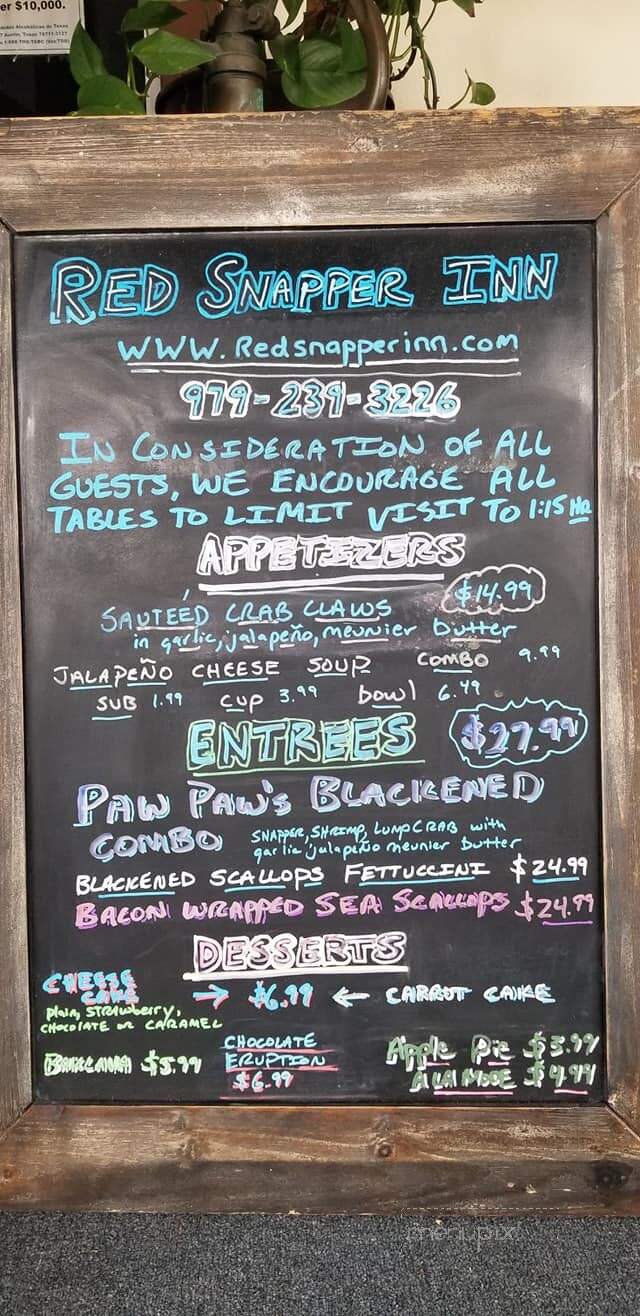 er $10,000.
RED SNAPPER INN
WWW.Redsnapperinn.com
979-239-3226
IN CONSIDERATION OF ALL
GUESTS, WE ENCOURAGE ALL
TABLES TO LIMIT VISIT TO 1:15 HR
APPETIZERS
SAUTÉED CRAB CLAWS $14.99
in garlic, jalapeño, meunier butter
JALAPEÑO CHEESE SOUP COMBO 9.99
SUB 1.99 CUP 3.99 bowl 6.49
ENTREES $27.99
PAW PAW'S BLACKENED
COMBO SNAPPER, SHRIMP, LUMP CRAB with
garlic jalapeño meunier butter
BLACKENED SCALLOPS FETTUCCINI $24.99
BACON WRAPPED SEA SCALLOPS $24.99
DESSERTS
CHEESE
CAKE → $6.99 ← CARROT CAKE
plain, STRAWberry,
CHOCOLATE OR CARAMEL
BAKLAVA $5.99
CHOCOLATE
ERUPTION
$6.99
Apple Pie $3.99
A LA MODE $4.99
menupix